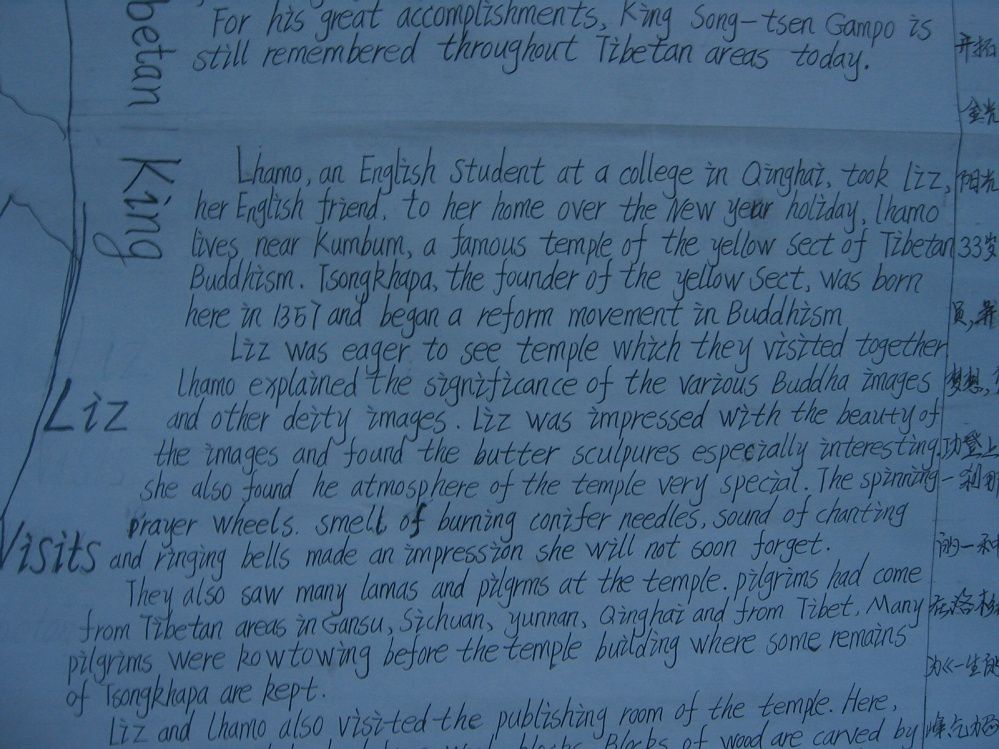 For his great accomplishments, King Song-tsen Gampo is
still remembered throughout Tibetan areas today.
betan King
Lhamo, an English Student at a college in Qinghai, took Liz,
her English friend, to her home over the New year holiday, lhamo
lives near Kumbum, a famous temple of the yellow sect of Tibetan
Buddhism. Tsongkhapa, the founder of the yellow sect, was born
here in 1357 and began a reform movement in Buddhism
Liz was eager to see temple which they visited together
lhamo explained the significance of the various Buddha images
and other deity images. Liz was impressed with the beauty of
the images and found the butter sculpures especially interesting
she also found he atmosphere of the temple very special. The spinning
prayer wheels. smell of burning conifer needles, sound of chanting
and ringing bells made an impression she will not soon forget.
They also saw many lamas and pilgrms at the temple. pilgrims had come
from Tibetan areas in Gansu, Sichuan, yunnan, Qinghai and from Tibet. Many
pilgrims were kowtowing before the temple building where some remains
of Tsongkhapa are kept.
Liz and lhamo also visited the publishing room of the temple. Here,
blocks. Blocks of wood are carved by
Liz
Visits
开拓
金光
阳光
33岁
员,
梦想,
功登上
利用
的一不
在洛
为《一生的
峰点